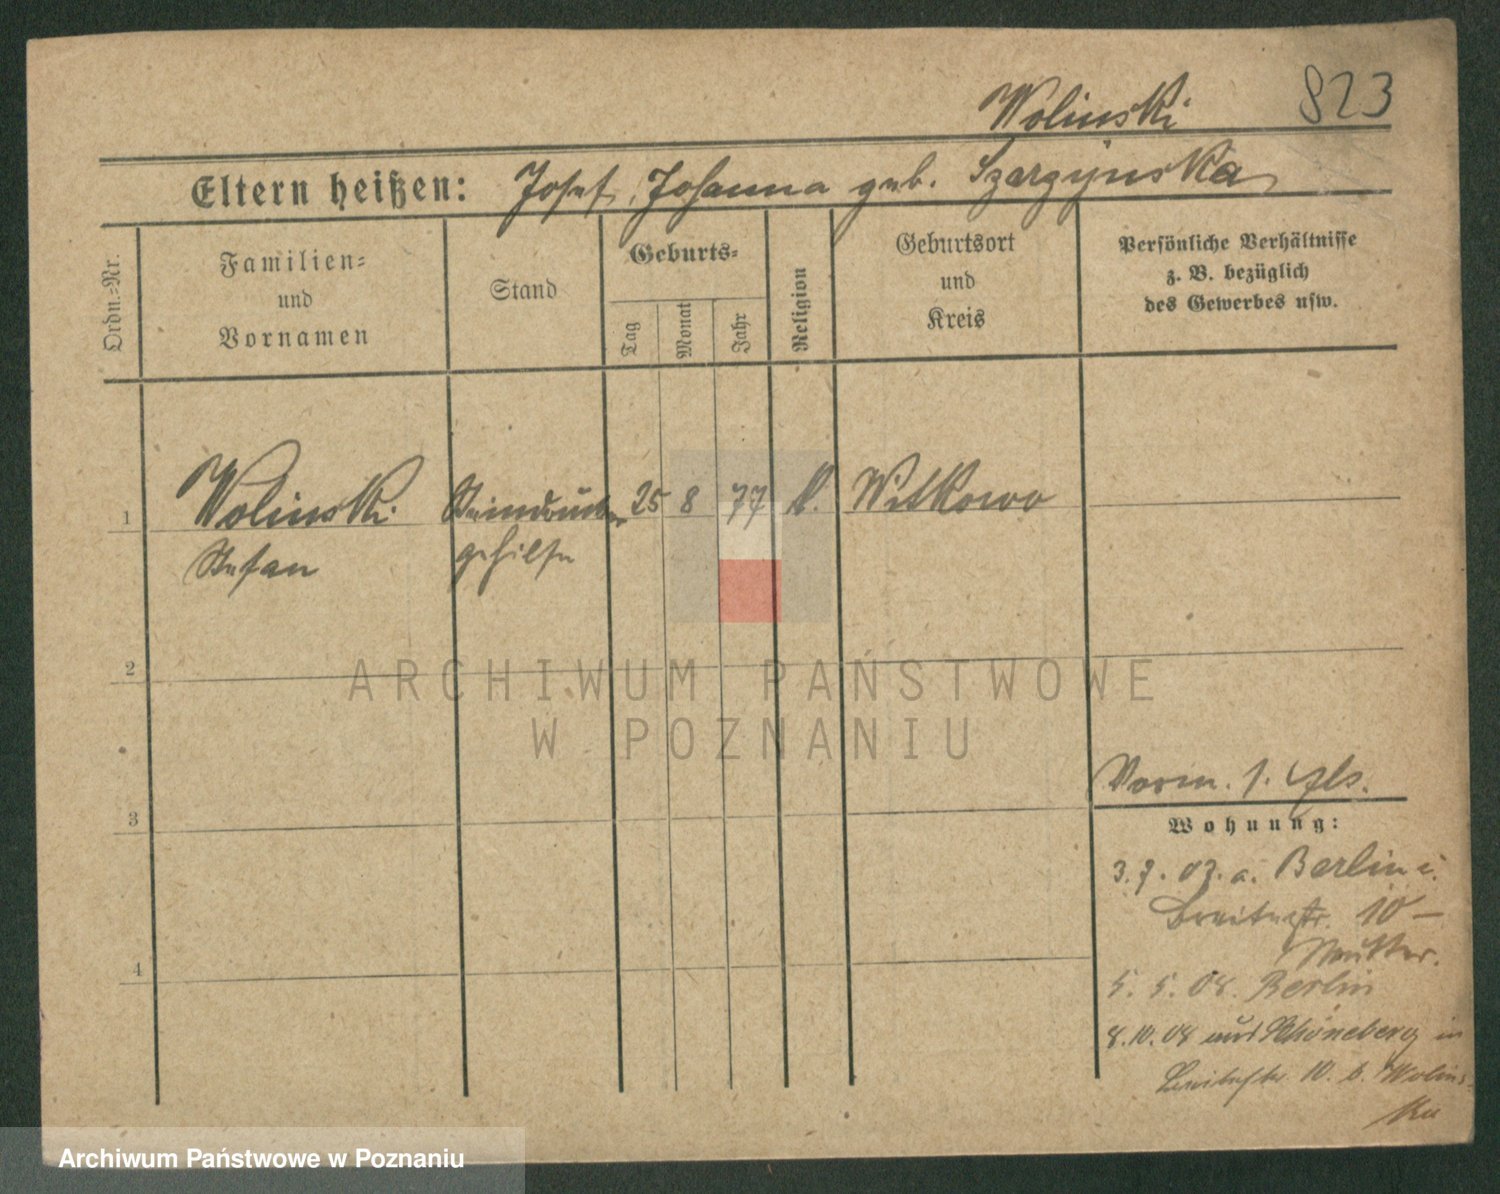 Wolinski 823
Eltern heißen: Josef, Johanna geb. Szarzynska
Ordn.=Nr.
Familien=
und
Vornamen
Stand
Geburts=
Tag
Monat
Jahr
Religion
Geburtsort
und
Kreis
Persönliche Verhältnisse
z. B. bezüglich
des Gewerbes usw.
1 Wolinski Steindrucker 25 8 77 k. Witkowo
Stefan gehilfe
2
ARCHIWUM PAŃSTWOWE
W POZNANIU
Vorm. 1.
3
Wohnung:
3.7.03. a. Berlin i.
Breitestr. 10 –
Mutter.
4
5. 5. 08. Berlin
8.10.08 aus Schöneberg in
Breitestr. 10. b. Wolins-
ka
Archiwum Państwowe w Poznaniu